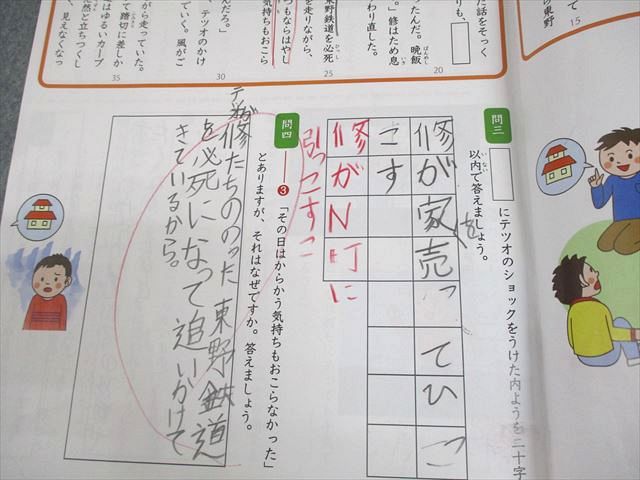 ら東野
て
15
た話をそっく
りも、
ったんだ。晩飯
ばんめし
。」修はため息
いき
わり直した。
20
東野鉄道を必死
ひっし
を走りながら、
つもならはやし
気持ちもおこら
25
んだろ。」
テツオのかけ
ていく。風がご
30
がら走っていた。
て踏切に差しか
はゆるいカーブ
然と立ちつくし
見えなくなっ
35
問三
にテツオのショックをうけた内ようを二十字
以内で答えましょう。
いない
修が家を売ってひっ
こす
修がN町に
引っこすこ
問四
❸「その日はからかう気持ちもおこらなかった」
とありますが、それはなぜですか。答えましょう。
テツオが
修たちののった東野鉄道
を必死になって追いかけて
きているから。